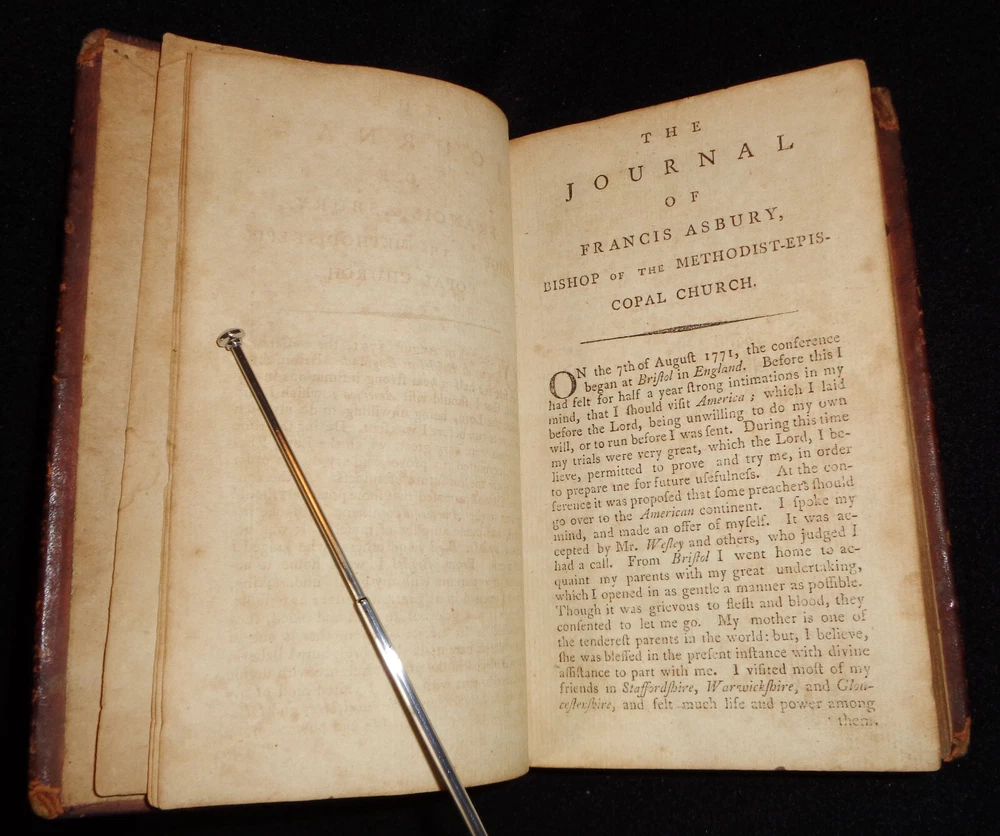 THE
JOURNAL
OF
FRANCIS ASBURY,
BISHOP OF THE METHODIST-EPIS-
COPAL CHURCH.
ON the 7th of Auguſt 1771, the conference
began at Briſtol in England. Before this I
had felt for half a year ſtrong intimations in my
mind, that I ſhould viſit America; which I laid
before the Lord, being unwilling to do my own
will, or to run before I was ſent. During this time
my trials were very great, which the Lord, I be-
lieve, permitted to prove and try me, in order
to prepare me for future uſefulneſs. At the con-
ference it was propoſed that ſome preachers ſhould
go over to the American continent. I ſpoke my
mind, and made an offer of myſelf. It was ac-
cepted by Mr. Weſley and others, who judged I
had a call. From Briſtol I went home to ac-
quaint my parents with my great undertaking,
which I opened in as gentle a manner as poſſible.
Though it was grievous to fleſh and blood, they
conſented to let me go. My mother is one of
the tendereſt parents in the world: but, I believe,
ſhe was bleſſed in the preſent inſtance with divine
aſſiſtance to part with me. I viſited moſt of my
friends in Staffordſhire, Warwickſhire, and Glou-
ceſterſhire, and felt much life and power among
them.